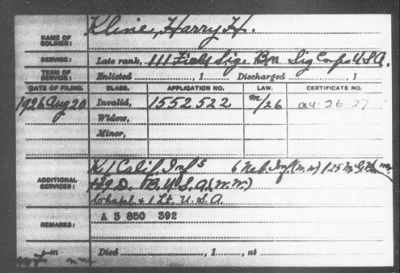 NAME OF SOLDIER: Kline, Harry H.
SERVICE: Late rank, 111 Field Sig. Bn Sig Corps U.S.A.
TERM OF SERVICE: Enlisted , 1 Discharged , 1
DATE OF FILING. CLASS. APPLICATION NO. LAW. CERTIFICATE NO.
1926 Aug 20 Invalid, 1552522 /26
Widow,
Minor,
ADDITIONAL SERVICES: K 1 Calif. Inf 6 Neb. Inf
U.S.A. (W.W.)
Chapl. & 1 Lt. U.S.A
REMARKS: A 3 850 392
Died , 1 , at